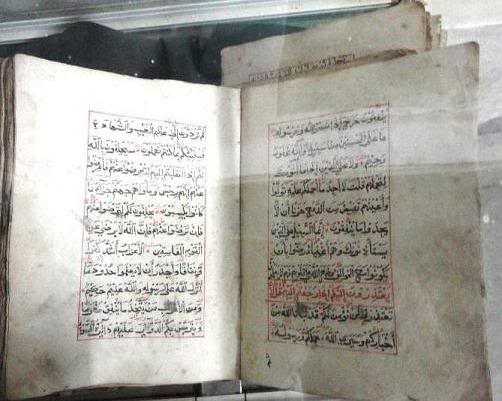 ينفقون حرج إذا نصحوا لله ورسوله
ما على المحسنين من سبيل والله غفور
رحيم ولا على الذين إذا ما أتوك
لتحملهم قلت لا أجد ما أحملكم عليه تولوا
وأعينهم تفيض من الدمع حزنا ألا
يجدوا ما ينفقون إنما السبيل على الذين
يستأذنونك وهم أغنياء رضوا بأن
يكونوا مع الخوالف وطبع الله على قلوبهم فهم لا يعلمون
يعتذرون إليكم إذا رجعتم إليهم قل لا
تعتذروا لن نؤمن لكم قد نبأنا الله من
أخباركم وسيرى الله عملكم ورسوله
ثم تردون إلى عالم الغيب والشهادة
فينبئكم بما كنتم تعملون سيحلفون بالله
لكم إذا انقلبتم إليهم لتعرضوا عنهم فأعرضوا
عنهم إنهم رجس ومأواهم جهنم جزاء بما
كانوا يكسبون يحلفون لكم لترضوا عنهم
فإن ترضوا عنهم فإن الله لا يرضى عن
القوم الفاسقين الأعراب أشد كفرا
ونفاقا وأجدر أن لا يعلموا حدود ما
أنزل الله على رسوله والله عليم حكيم
ومن الأعراب من يتخذ ما ينفق مغرما
ويتربص بكم الدوائر عليهم دائرة السوء